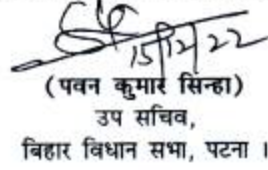 15/12/22
(पवन कुमार सिन्हा)
उप सचिव,
बिहार विधान सभा, पटना ।